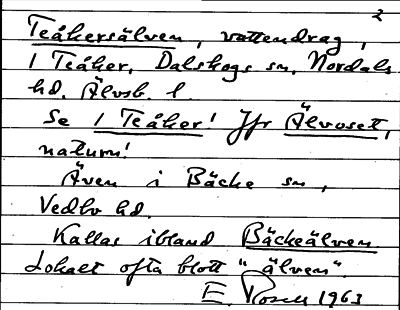 2
Teåkersälven, vattendrag,
1 Teåker, Dalskogs sn, Nordals
hd, Älvsb. l.
Se 1 Teåker! Jfr Älvoset,
naturn!
Även i Bäcke sn,
Vedbo hd.
Kallas ibland Bäckeälven.
Lokalt ofta blott "älven".
E. Rosell 1963